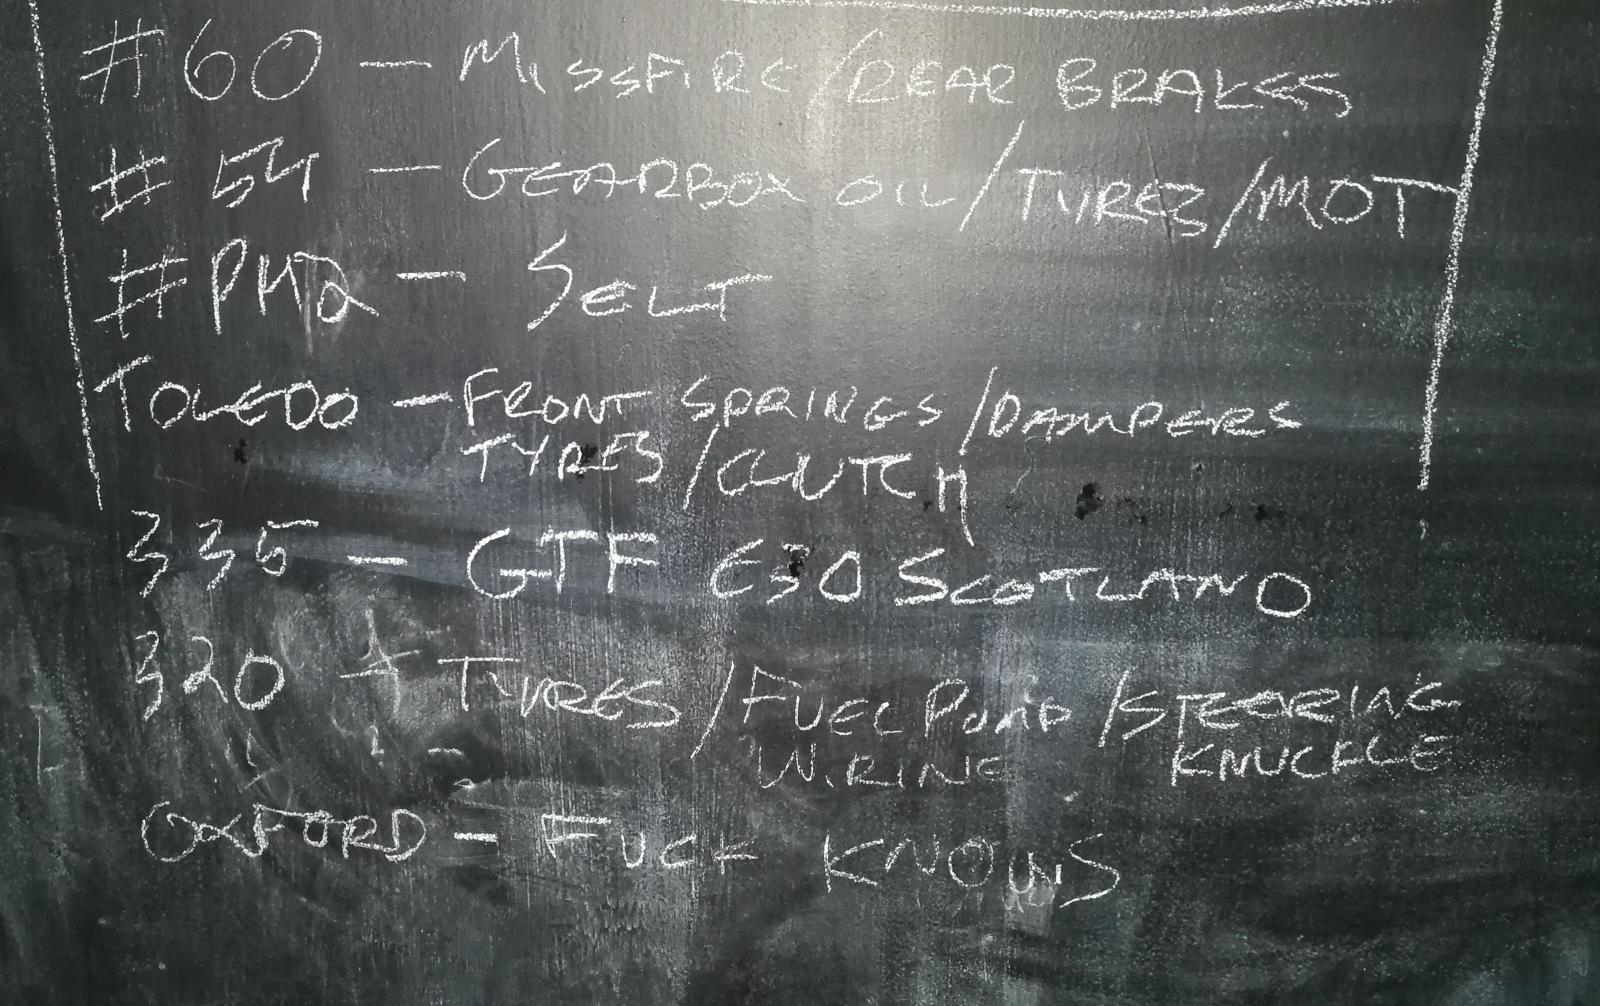 #60 - MISSFIRE/REAR BRAKES
# 54 - GEARBOX OIL/TYRES/MOT
#PH2 - SELL
TOLEDO - FRONT SPRINGS/DAMPERS
TYRES/CLUTCH
335 - GTF E30 SCOTLAND
320 - TYRES/FUEL PUMP/STEERING
WIRING KNUCKLE
OXFORD - FUCK KNOWS